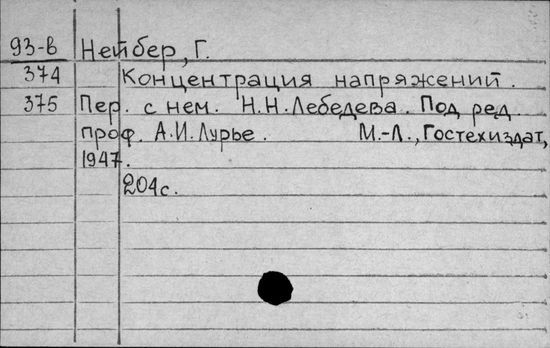 93-в Нейбер, Г.
374 Концентрация напряжений.
375 Пер. с нем. Н.Н.Лебедева. Под ред.
проф. А.И.Лурье. М.-Л., Гостехиздат,
1947.
204с.